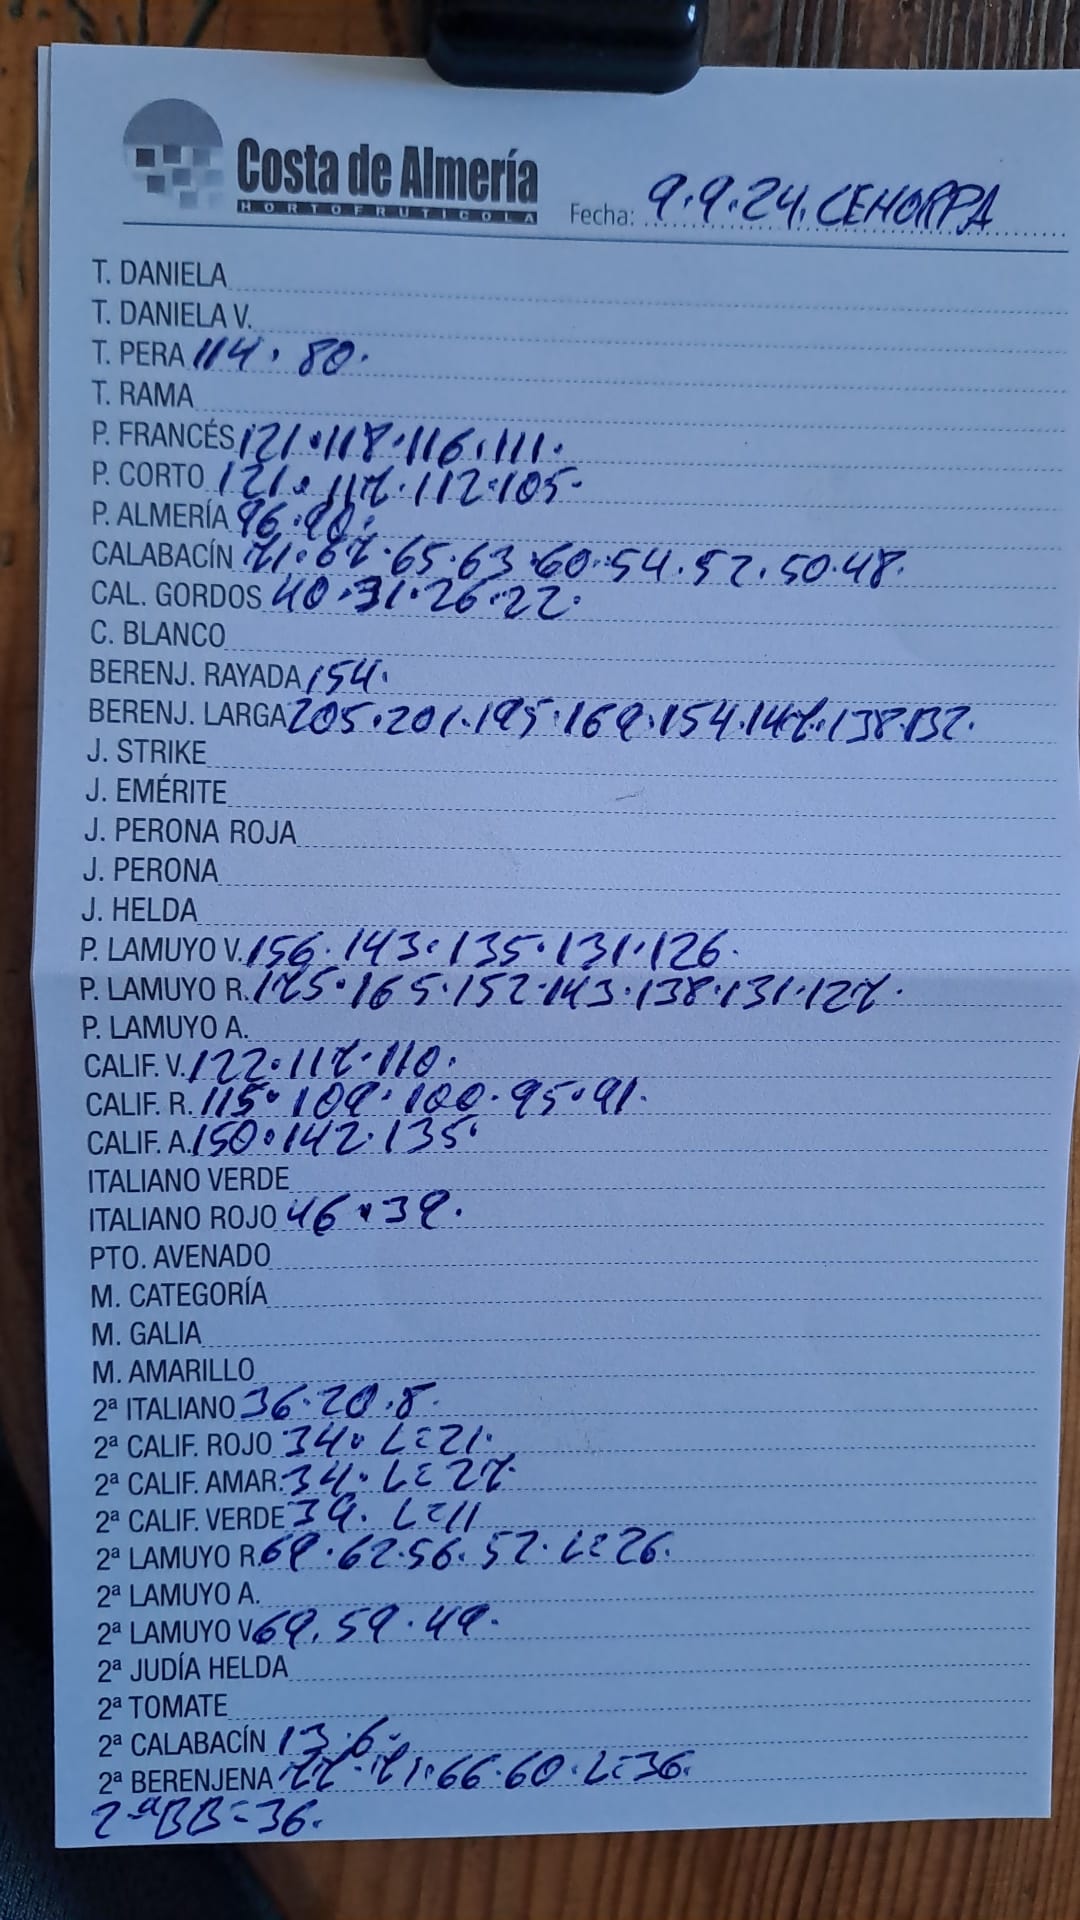 Costa de Almería
HORTOFRUTICOLA
Fecha: 9.9.24. CEHORPA
T. DANIELA
T. DANIELA V.
T. PERA 114. 80.
T. RAMA
P. FRANCÉS 121.118.116.111.
P. CORTO 121.117.112.105.
P. ALMERÍA 96.90.
CALABACÍN 71.67.65.63.60.54.52.50.48.
CAL. GORDOS 40.31.26.22.
C. BLANCO
BERENJ. RAYADA 154.
BERENJ. LARGA 205.201.195.169.154.147.138.132.
J. STRIKE
J. EMÉRITE
J. PERONA ROJA
J. PERONA
J. HELDA
P. LAMUYO V. 156.143.135.131.126.
P. LAMUYO R. 175.165.152.143.138.131.127.
P. LAMUYO A.
CALIF. V. 122.117.110.
CALIF. R. 115.109.100.95.91.
CALIF. A. 150.142.135.
ITALIANO VERDE
ITALIANO ROJO 46.39.
PTO. AVENADO
M. CATEGORÍA
M. GALIA
M. AMARILLO
2ª ITALIANO 36.20.8.
2ª CALIF. ROJO 34. L=21.
2ª CALIF. AMAR. 34. L=27.
2ª CALIF. VERDE 39. L=11
2ª LAMUYO R. 69.62.56.52. L=26.
2ª LAMUYO A.
2ª LAMUYO V. 69.59.49.
2ª JUDÍA HELDA
2ª TOMATE
2ª CALABACÍN 13.6.
2ª BERENJENA 77.71.66.60. L=36.
2ª BB=36.